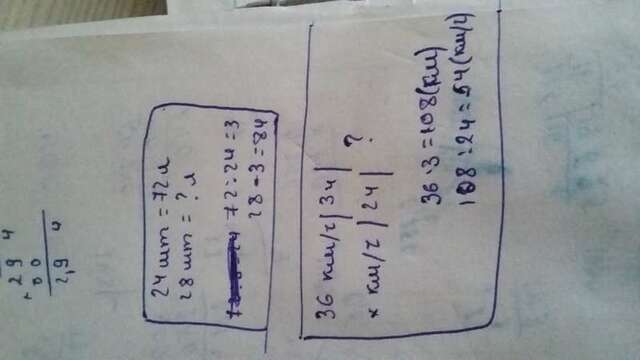 294
× 00
2,94
24 шт = 72 л
28 шт = ? л
72 : 24 = 3
28 · 3 = 84
36 км/ч | 3ч |
x км/ч | 2ч | ?
36 · 3 = 108 (км)
108 : 2ч = 54 (км/ч)